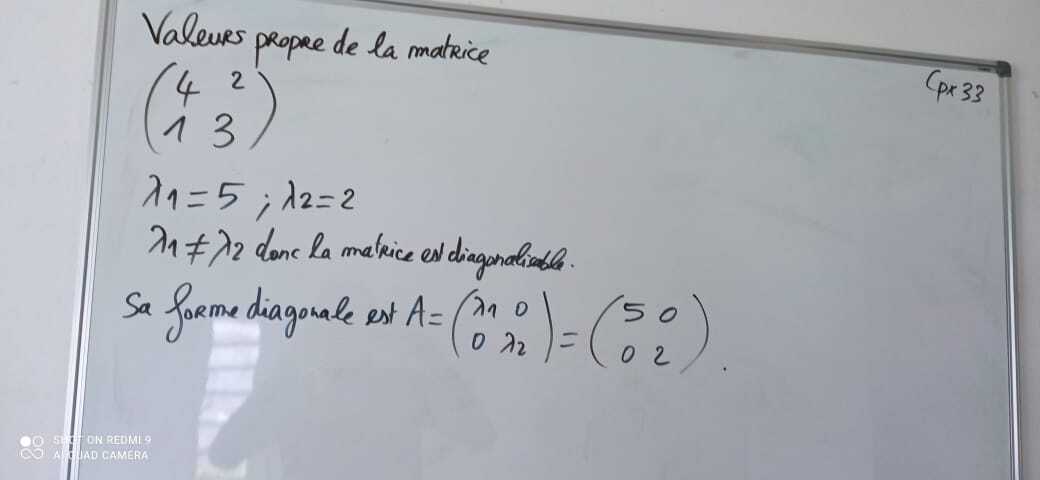 Valeurs propre de la matrice
Cpx 33
(4 2
1 3)
λ1 = 5 ; λ2 = 2
λ1 ≠ λ2 donc la matrice est diagonalisable.
Sa forme diagonale est A = (λ1 0
0 λ2) = (5 0
0 2).
SHOT ON REDMI 9
AI QUAD CAMERA